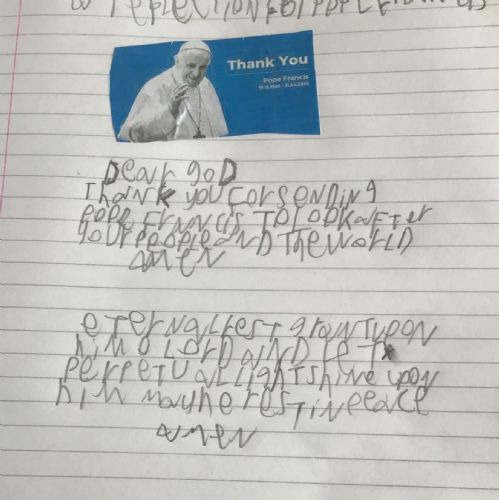 REFLECTION FOR POPE FRANCIS
Thank You
Pope Francis
17.12.1936 - 21.04.2025
Dear goD
Thank you For senDing
POPE FranciS To LOOK aFTer
your peopLe anD The worLD
amen
eTernaL resT granT upon
him o LorD anD LeT
perpeTuaL LighT shine upon
him may he resT in peace
amen